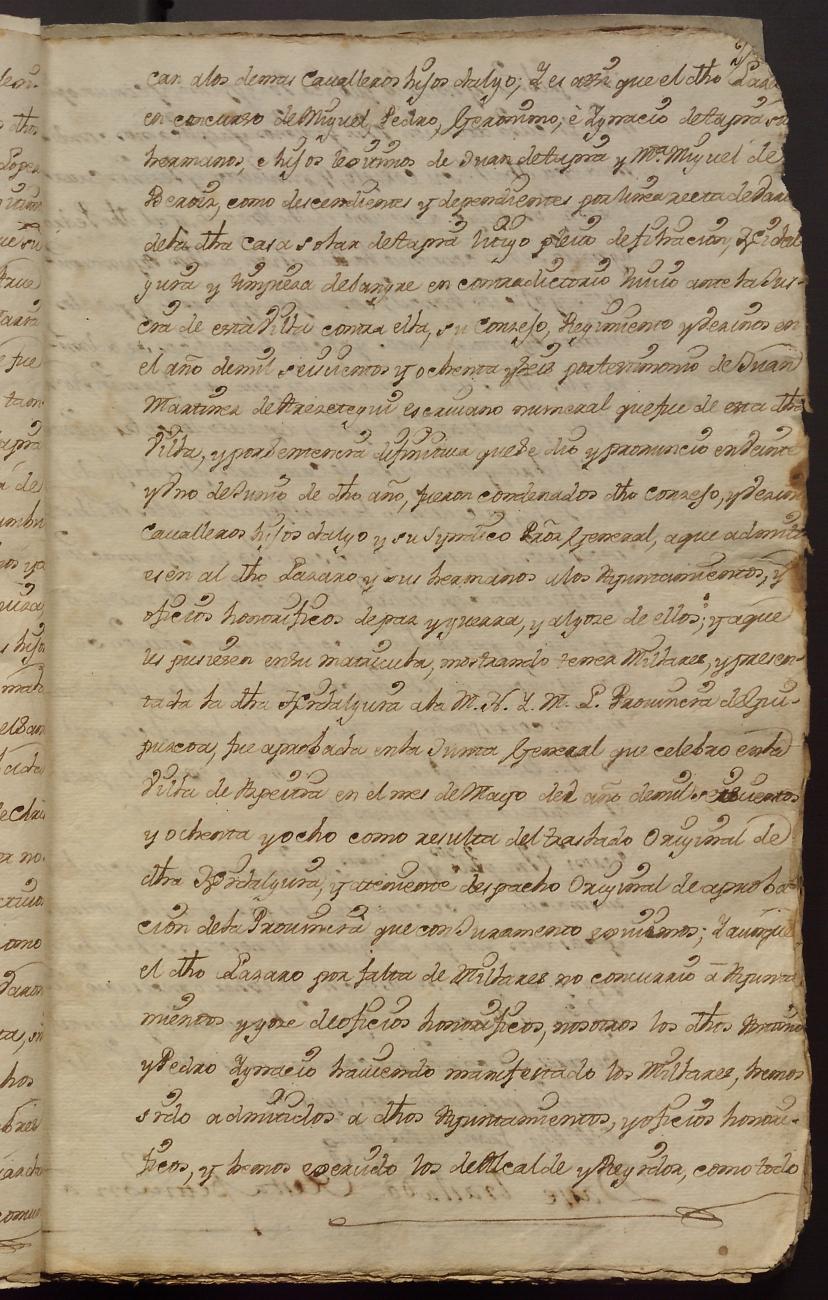 can alos demas Cavalleros hijos dalgo; Y es assi que el dho Lazaro
en concurso de Miguel, Pedro, Geronimo, è Ygnacio de Tapia sus
hermanos, e hijos lexitimos de Juan de Tapia y Mª Miguel de
como descendientes y dependientes por linea recta de
dela dha Casa solar de Tapia litigo pleito de filiacion, Hidal
guia y limpieza de Sangre en contradictorio Juicio ante la Justi-
cia de esta Villa contra ella, su Conzejo, Regimiento y Vezinos en
el año de mil seiscientos y ochenta y seis por testimonio de Juan
Martinez de escriuano numeral que fue de esta dha
Villa, y por Sentencia difinitiva que se dio y pronuncio en Veinte
y Vno de Junio de dho año, fueron condenados dho Conzejo, y Vezinos
Cavalleros hijos dalgo y su Syndico Pror General, a que admiti
esen al dho Lazaro y sus hermanos alos Ayuntamientos, y
oficios honorificos de paz y guerra, y al goze de ellos; y aque
les pusiesen en su matricula, mostrando tener Millares, y presen-
tada la dha Hidalguia ala M. N. Y. M. L. Provincia de Gui-
puzcoa, fue aprobada en la Junta General que celebro en la
Villa de Azpeitia en el mes de Mayo del año de mil seiscientos
y ochenta y ocho como resulta del traslado Original de
dha Hidalguia, y despacho Original de aproba
cion dela Provincia que con Juramento exivimos; Y aunque
el dho Lazaro por falta de Millares no concurrio â Ayunta
mientos y goze de oficios honorificos, nosotros los dhos
y Pedro Ygnacio haviendo manifestado los Millares, hemos
sido admitidos a dhos Ayuntamientos, y oficios honori-
ficos, y hemos exercido los de Alcalde y Regidor, como todo